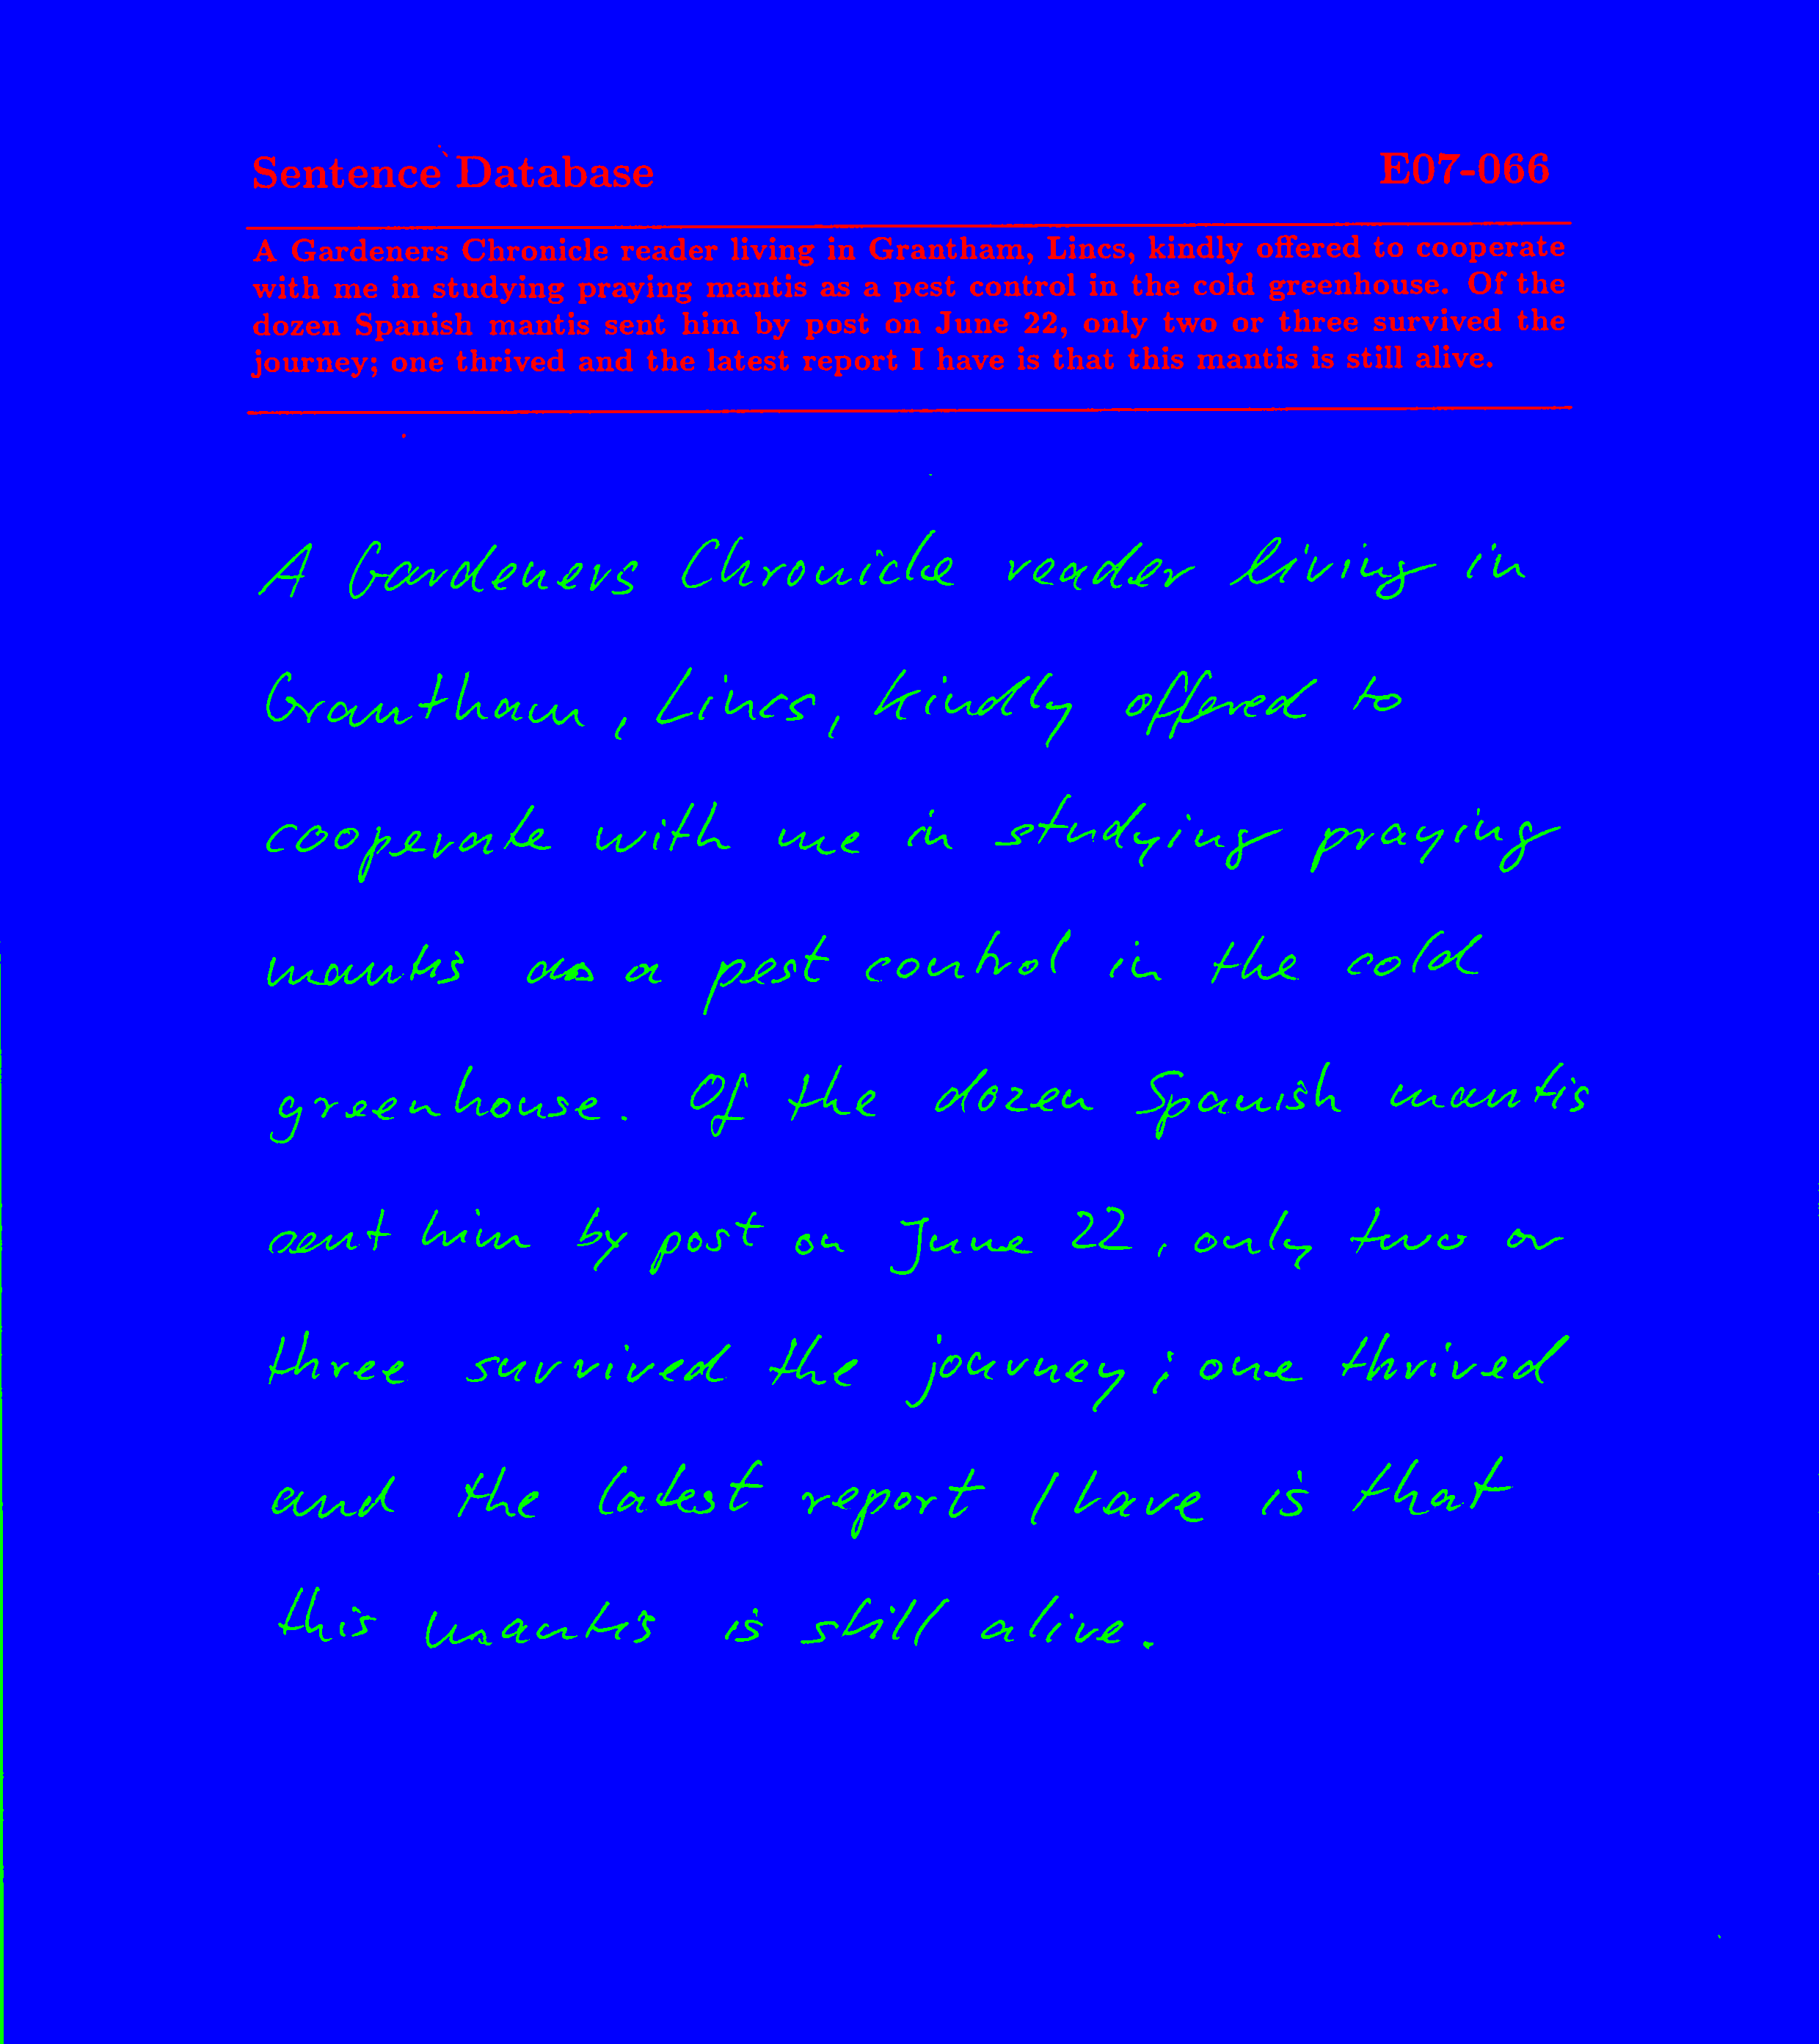 Sentence Database E07-066
A Gardeners Chronicle reader living in Grantham, Lincs, kindly offered to cooperate
with me in studying praying mantis as a pest control in the cold greenhouse. Of the
dozen Spanish mantis sent him by post on June 22, only two or three survived the
journey; one thrived and the latest report I have is that this mantis is still alive.
A Gardeners Chronicle reader living in
Grantham, Lincs, kindly offered to
cooperate with me in studying praying
mantis as a pest control in the cold
greenhouse. Of the dozen Spanish mantis
sent him by post on June 22, only two or
three survived the journey; one thrived
and the latest report I have is that
this mantis is still alive.